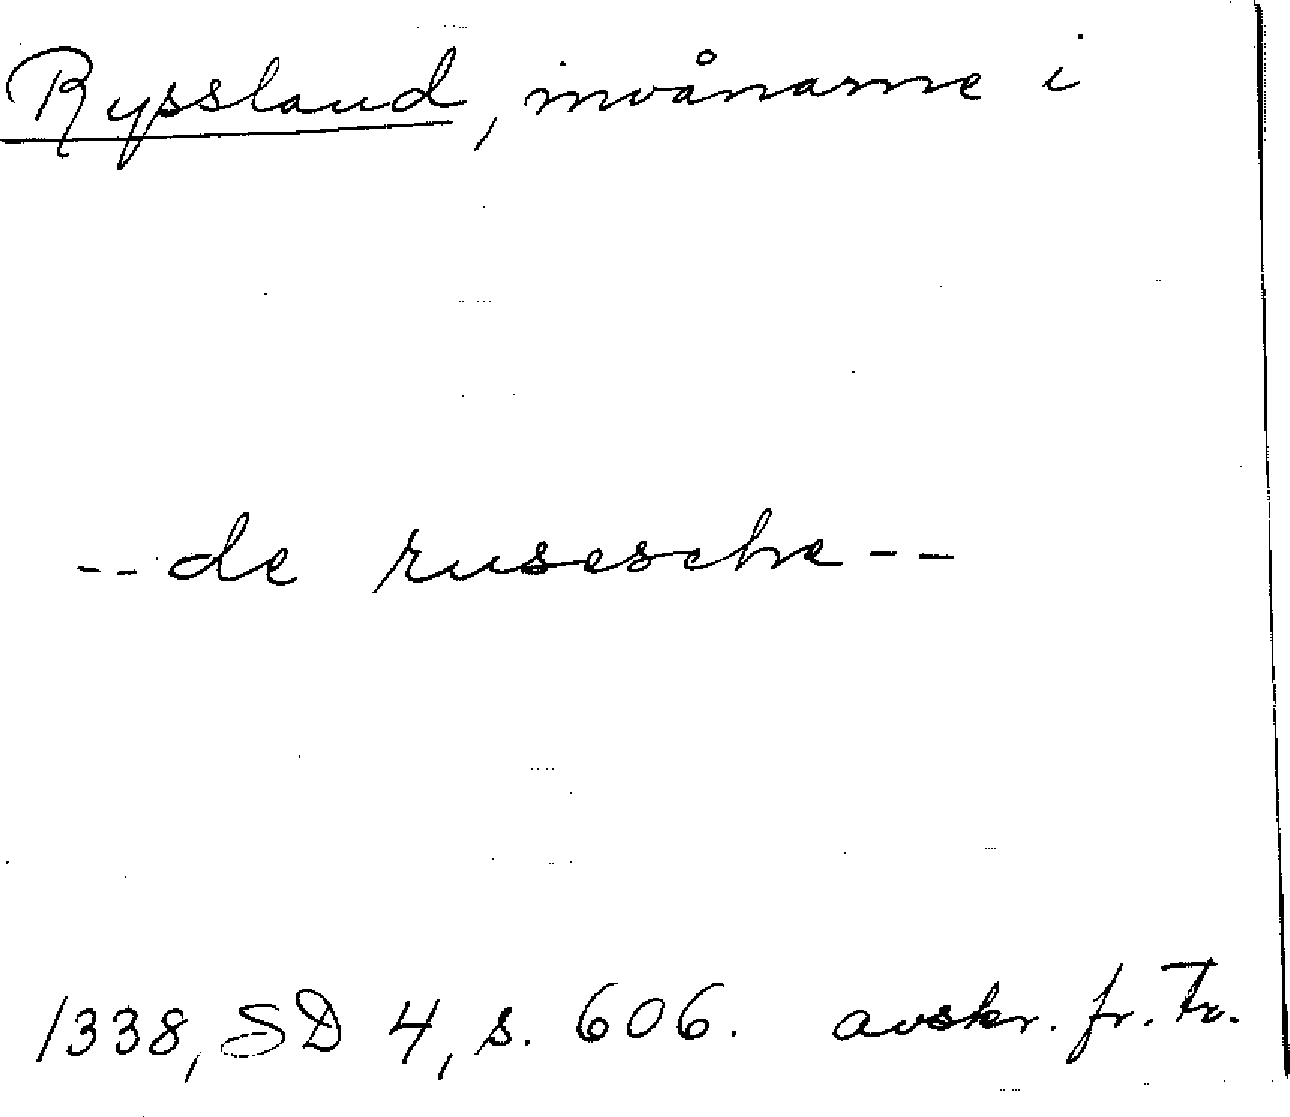 Ryssland, invånarne i
--de rusesche--
1338, SD 4, s. 606. avskr. fr. Tr.